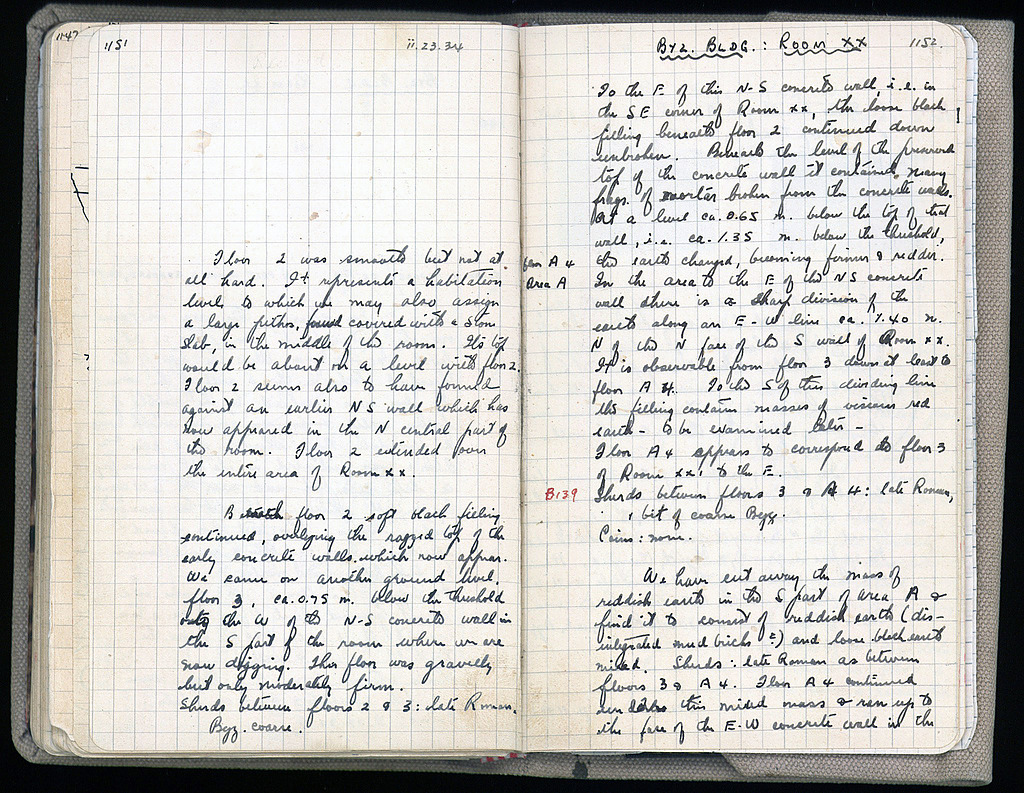 1147
1151
ii.23.34
Floor 2 was smooth but not at
all hard. It represents a habitation
level to which we may also assign
a large pithos, found covered with a stone
slab, in the middle of the room. Its top
would be about on a level with floor 2.
Floor 2 seems also to have formed
against an earlier NS wall which has
now appeared in the N central part of
the room. Floor 2 extended over
the entire area of Room xx.
floor 2 soft black filling
continued, overlying the ragged top of the
early concrete walls which now appear.
We came on another ground level,
floor 3, ca. 0.75 m. below the threshold
the W of the N-S concrete wall in
the S part of the room where we are
now digging. This floor was gravelly
but only moderately firm.
Sherds between floors 2 & 3: late Roman.
Byz. coarse.
BYZ. BLDG.: ROOM XX
1152.
To the E of this N-S concrete wall, i.e. in
the SE corner of Room xx, the loose black
filling beneath floor 2 continued down
unbroken. Beneath the level of the preserved
top of the concrete wall it contained many
frags. of mortar broken from the concrete walls.
At a level ca. 0.65 m. below the top of that
wall, i.e. ca. 1.35 m. below the threshold,
floor A 4
the earth changed, becoming firmer & redder.
Area A
In the area to the E of the NS concrete
wall there is a sharp division of the
earth along an E-W line ca. 1.40 m.
N of the N face of the S wall of Room xx.
It is observable from floor 3 down at least to
floor A 4. To the S of this dividing line
the filling contains masses of viscous red
earth - to be examined later -
Floor A4 appears to correspond to floor 3
of Room xx to the E.
B139
Sherds between floors 3 & A 4: late Roman,
1 bit of coarse Byz.
Coins: none.
We have cut away the mass of
reddish earth in the S part of area A &
find it to consist of reddish earth (dis-
integrated mud brick?) and loose black earth
mixed. Sherds: late Roman as between
floors 3 & A 4. Floor A4 continued
this mixed mass & ran up to
the face of the E-W concrete wall in the